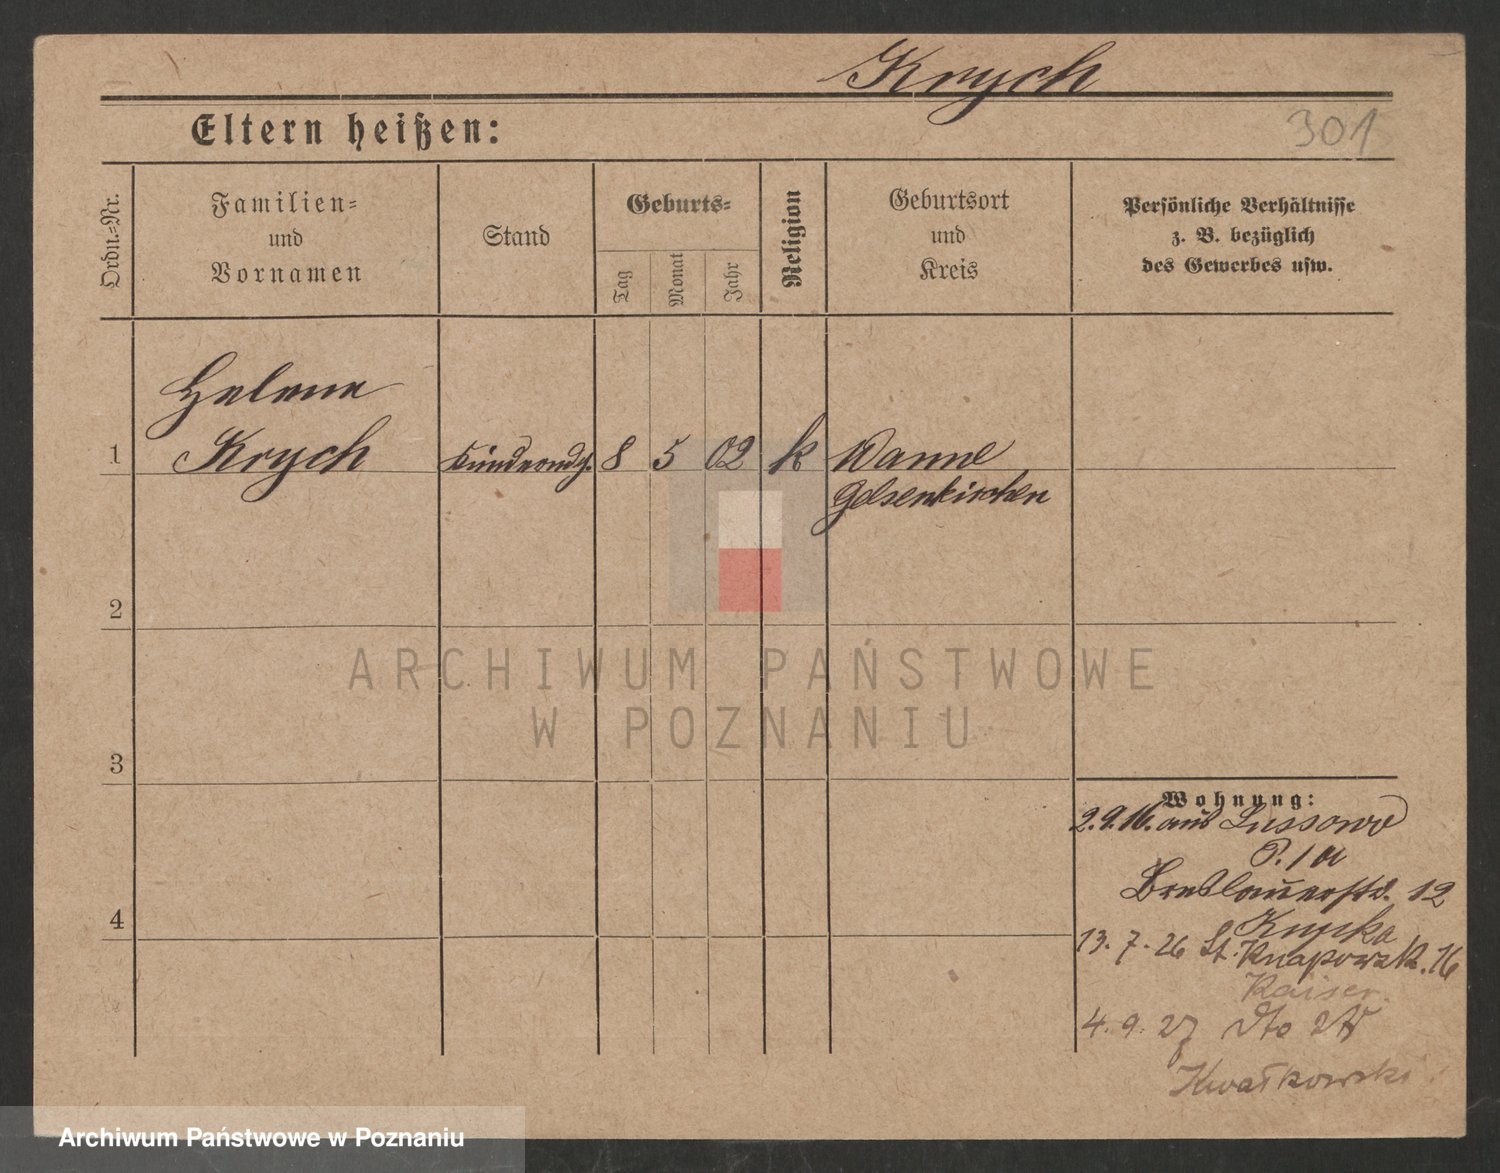 Krych
Eltern heißen:
301
Ordn.-Nr.
Familien-
und
Vornamen
Stand
Geburts-
Tag
Monat
Jahr
Religion
Geburtsort
und
Kreis
Persönliche Verhältnisse
z. B. bezüglich
des Gewerbes usw.
Helene
1 Krych 8 5 02 k Wanne
Gelsenkirchen
2
3
4
Wohnung:
2.9.16. aus Lussowo
P. 1 a
Breslauerstr. 12
13. 7. 26 St. Knapowsk. 16
Kaiser
4. 9. 27 dto
Kwatkowski
ARCHIWUM PAŃSTWOWE
W POZNANIU
Archiwum Państwowe w Poznaniu